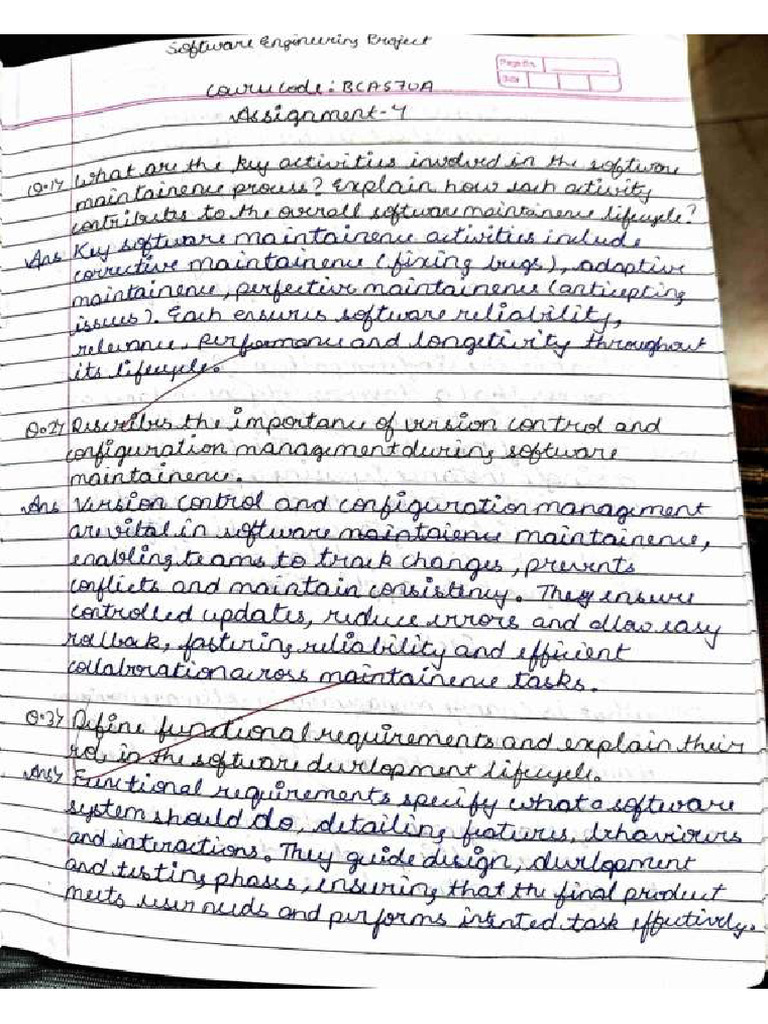 Software Engineering Project
Page No.
Date
Course Code: BCA570A
Assignment-4
Q.1> What are the key activities involved in the software
maintainence process? Explain how each activity
contributes to the overall software maintainence lifecycle?
Ans Key software maintainence activities include
corrective maintainence (fixing bugs), adaptive
maintainence, perfective maintainence (anticepting
issues). Each ensures software reliability,
relevance, performance and longetivity throughout
its lifecycle.
Q.2> Describes the importance of version control and
configuration management during software
maintainence.
Ans Version control and configuration management
are vital in software maintaience maintainence,
enabling teams to track changes, prevents
conflicts and maintain consistency. They ensure
controlled updates, reduce errors and allow easy
rollback, fastering reliability and efficient
collaboration across maintainence tasks.
Q.3> Define functional requirements and explain their
role in the software development lifecycle.
Ans> Functional requirements specify what a software
system should do, detailing features, behaviours
and interactions. They guide design, development
and testing phases, ensuring that the final product
meets user needs and performs task effectively.